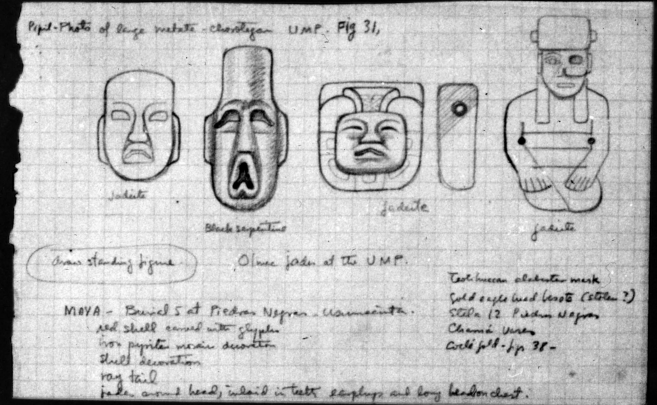 Pipil - Photo of large metate - Chorotegan UMP. Fig 31,
jadeite
Black serpentine
jadeite
jadeite
draw standing figure
Olmec jades at the UMP.
Teotihuacan alabaster mask
Gold eagle head (stolen?)
Stela 12 Piedras Negras
Chamá vases
Coclé gold - pp. 38 -
MAYA - Burial 5 at Piedras Negras - Usumacinta.
red shell carved with glyphs
iron pyrites mosaic decoration
shell decoration
ray tail
jades around head, inlaid in teeth earplugs and long bead on chest.